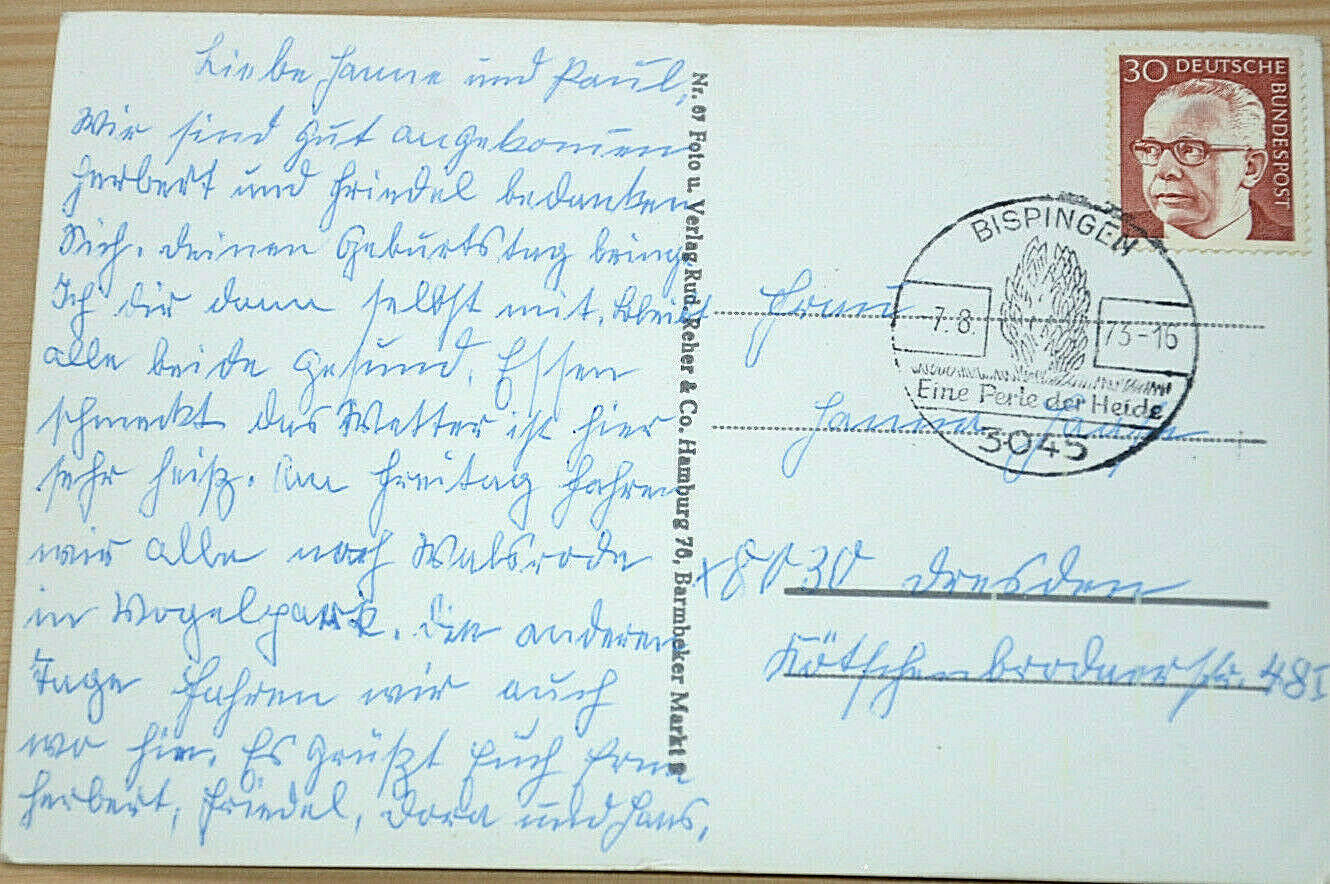 Liebe Hanne und Paul,
Wir sind gut angekommen
Herbert und Friedel bedanken
Sich. Deinen Geburtstag bring
Ich dir dann selbst mit. Bleibt
alle beide gesund. Essen
schmeckt das Wetter ist hier
sehr heiß. Am Freitag fahren
wir alle nach Walsrode
in Vogelpark. Die anderen
Tage fahren wir auch
wo hin. Es grüßt Euch Erna
Herbert, Friedel, Dora und Hans.
Nr. 67 Foto u. Verlag Rud. Reher & Co. Hamburg 76, Barmbeker Markt
30 DEUTSCHE BUNDESPOST
BISPINGEN
-7.8 73-16
Eine Perle der Heide
3045
Frau
Hanna
x8030 Dresden
Kötschenbrodaer Str. 48I